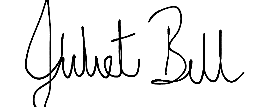 Juliet Bell